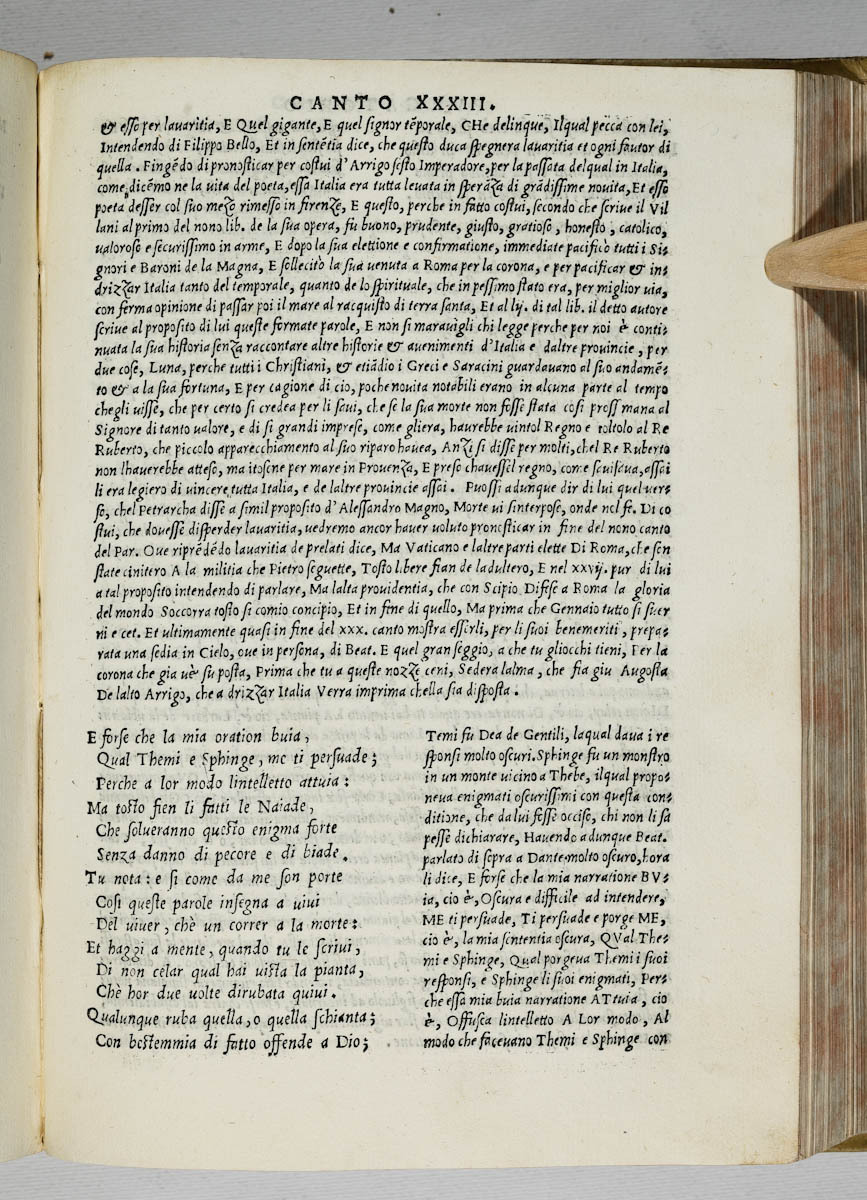 CANTO XXXIII.
& esso per lauaritia, E Quel gigante, E quel signor tẽporale, CHe delinque, Ilqual pecca con lei,
Intendendo di Filippo Bello, Et in sentẽtia dice, che questo duca spegnera lauaritia et ogni fautor di
quella. Fingẽdo di pronosticar per costui d'Arrigo sesto Imperadore, per la passata delqual in Italia,
come dicẽmo ne la uita del poeta, essa Italia era tutta leuata in sperãza di grãdissime nouita, Et esso
poeta desser col suo mezo rimesso in firenze, E questo, perche in fatto costui, secondo che scriue il Vil
lani al primo del nono lib. de la sua opera, fù buono, prudente, giusto, gratioso, honesto, catolico,
ualoroso e securissimo in arme, E dopo la sua elettione e confirmatione, immediate pacificò tutti i Si-
gnori e Baroni de la Magna, E sollecitò la sua uenuta a Roma per la corona, e per pacificar & in-
drizzar Italia tanto del temporale, quanto de lo spirituale, che in pessimo stato era, per miglior uia,
con ferma opinione di passar poi il mare al racquisto di terra santa, Et al ly. di tal lib. il detto autore
scriue al proposito di lui queste formate parole, E non si marauigli chi legge perche per noi è conti-
nuata la sua historia senza raccontare altre historie & auenimenti d'Italia e daltre prouincie, per
due cose, Luna, perche tutti i Christiani, & etiãdio i Greci e Saracini guardauano al suo andamẽ-
to & a la sua fortuna, E per cagione di cio, poche nouita notabili erano in alcuna parte al tempo
chegli uisse, che per certo si credea per li saui, che se la sua morte non fosse stata cosi pross mana al
Signore di tanto ualore, e di si grandi imprese, come gliera, haurebbe uintol Regno e toltolo al Re
Ruberto, che piccolo apparecchiamento al suo riparo hauea, Anzi si disse per molti, chel Re Ruberto
non lhauerebbe atteso, ma itosene per mare in Prouenza, E preso chauessel regno, come seuiseua, assai
li era legiero di uincere tutta Italia, e de laltre prouincie assai. Puossi adunque dir di lui quel uer-
so, chel Petrarcha disse a simil proposito d'Alessandro Magno, Morte ui sinterpose, onde nol fe. Di co
stui, che douesse disperder lauaritia, uedremo ancor hauer uoluto pronosticar in fine del nono canto
del Par. Oue riprẽdẽdo lauaritia de prelati dice, Ma Vaticano e laltre parti elette Di Roma, che son
state cimitero A la militia che Pietro seguette, Tosto libere fian de ladultero, E nel xxvij. pur di lui
a tal proposito intendendo di parlare, Ma lalta prouidentia, che con Scipio Difese a Roma la gloria
del mondo Soccorra tosto si comio concipio, Et in fine di quello, Ma prima che Gennaio tutto si suer
ni e cet. Et ultimamente quasi in fine del xxx. canto mostra esserli, per li suoi benemeriti, prepa-
rata una sedia in Cielo, oue in persona, di Beat. E quel gran seggio, a che tu gliocchi tieni, Per la
corona che gia uè su posta, Prima che tu a queste nozze ceni, Sedera lalma, che fia giu Augosta
De lalto Arrigo, che a drizzar Italia Verra imprima chella sia disposta.
E forse che la mia oration buia,
Qual Themi e Sphinge, me ti persuade;
Perche a lor modo lintelletto attuia:
Ma tosto fien li fatti le Naiade,
Che solueranno questo enigma forte
Senza danno di pecore e di biade.
Tu nota: e si come da me son porte
Cosi queste parole insegna a uiui
Del uiuer, chè un correr a la morte:
Et haggi a mente, quando tu le scriui,
Di non celar qual hai uista la pianta,
Chè hor due uolte dirubata quiui.
Qualunque ruba quella, o quella schianta;
Con bestemmia di fatto offende a Dio;
Temi fù Dea de Gentili, laqual daua i re
sponsi molto oscuri. Sphinge fu un monstro
in un monte uicino a Thebe, ilqual propo-
neua enigmati oscurissimi con questa con-
ditione, che da lui fosse occiso, chi non li sa
pesse dichiarare, Hauendo adunque Beat.
parlato di sopra a Dante molto oscuro, hora
li dice, E forse che la mia narratione BV-
ia, cio è, Oscura e difficile ad intendere,
ME ti persuade, Ti persuade e porge ME,
cio è, la mia sententia oscura, QVal The-
mi e Sphinge, Qual porgeua Themi i suoi
responsi, e Sphinge li suoi enigmati, Per-
che essa mia buia narratione ATtuia, cio
è, Offusca lintelletto A Lor modo, Al
modo che faceuano Themi e Sphinge con